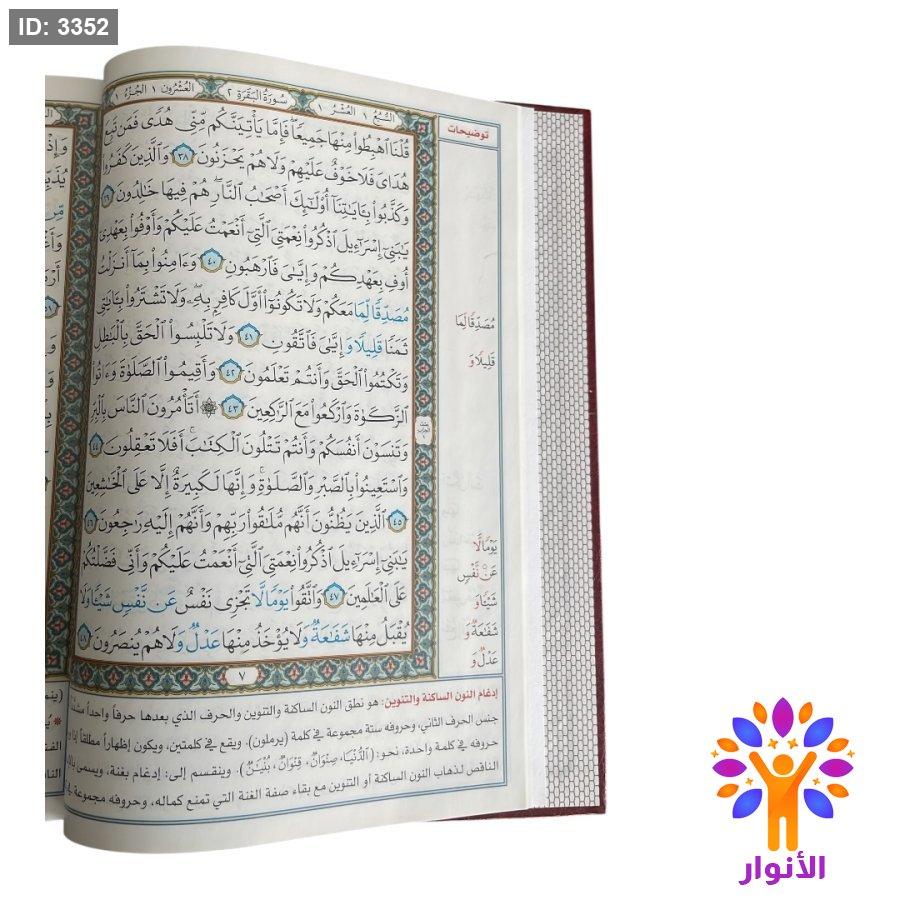 ID: 3352
السُّبُعُ ١ العُشْرُ ١ سُورَةُ البَقَرَةِ ٢ العُشْرُونَ ١ الجُزْءُ ١
توضيحات
قُلْنَا ٱهْبِطُوا۟ مِنْهَا جَمِيعًا ۖ فَإِمَّا يَأْتِيَنَّكُم مِّنِّى هُدًى فَمَن تَبِعَ
هُدَاىَ فَلَا خَوْفٌ عَلَيْهِمْ وَلَا هُمْ يَحْزَنُونَ ٣٨ وَٱلَّذِينَ كَفَرُوا۟
وَكَذَّبُوا۟ بِـَٔايَٰتِنَآ أُو۟لَٰٓئِكَ أَصْحَٰبُ ٱلنَّارِ ۖ هُمْ فِيهَا خَٰلِدُونَ ٣٩
يَٰبَنِىٓ إِسْرَٰٓءِيلَ ٱذْكُرُوا۟ نِعْمَتِىَ ٱلَّتِىٓ أَنْعَمْتُ عَلَيْكُمْ وَأَوْفُوا۟ بِعَهْدِىٓ
أُوفِ بِعَهْدِكُمْ وَإِيَّٰىَ فَٱرْهَبُونِ ٤٠ وَءَامِنُوا۟ بِمَآ أَنزَلْتُ
مُصَدِّقًا لِّمَا مَعَكُمْ وَلَا تَكُونُوٓا۟ أَوَّلَ كَافِرٍۭ بِهِۦ ۖ وَلَا تَشْتَرُوا۟ بِـَٔايَٰتِى
ثَمَنًا قَلِيلًا وَإِيَّٰىَ فَٱتَّقُونِ ٤١ وَلَا تَلْبِسُوا۟ ٱلْحَقَّ بِٱلْبَٰطِلِ
وَتَكْتُمُوا۟ ٱلْحَقَّ وَأَنتُمْ تَعْلَمُونَ ٤٢ وَأَقِيمُوا۟ ٱلصَّلَوٰةَ وَءَاتُوا۟
ٱلزَّكَوٰةَ وَٱرْكَعُوا۟ مَعَ ٱلرَّٰكِعِينَ ٤٣ ۞ أَتَأْمُرُونَ ٱلنَّاسَ بِٱلْبِرِّ
وَتَنسَوْنَ أَنفُسَكُمْ وَأَنتُمْ تَتْلُونَ ٱلْكِتَٰبَ ۚ أَفَلَا تَعْقِلُونَ ٤٤
وَٱسْتَعِينُوا۟ بِٱلصَّبْرِ وَٱلصَّلَوٰةِ ۚ وَإِنَّهَا لَكَبِيرَةٌ إِلَّا عَلَى ٱلْخَٰشِعِينَ
٤٥ ٱلَّذِينَ يَظُنُّونَ أَنَّهُم مُّلَٰقُوا۟ رَبِّهِمْ وَأَنَّهُمْ إِلَيْهِ رَٰجِعُونَ ٤٦
يَٰبَنِىٓ إِسْرَٰٓءِيلَ ٱذْكُرُوا۟ نِعْمَتِىَ ٱلَّتِىٓ أَنْعَمْتُ عَلَيْكُمْ وَأَنِّى فَضَّلْتُكُمْ
عَلَى ٱلْعَٰلَمِينَ ٤٧ وَٱتَّقُوا۟ يَوْمًا لَّا تَجْزِى نَفْسٌ عَن نَّفْسٍ شَيْـًٔا وَلَا
يُقْبَلُ مِنْهَا شَفَٰعَةٌ وَلَا يُؤْخَذُ مِنْهَا عَدْلٌ وَلَا هُمْ يُنصَرُونَ ٤٨
٧
مُصَدِّقًا لِّمَا
قَلِيلًا وَ
يَوْمًا لَّا
عَن نَّفْسٍ
شَيْـًٔا وَ
شَفَٰعَةٌ وَ
عَدْلٌ وَ
إدغام النون الساكنة والتنوين: هو نطق النون الساكنة والتنوين والحرف الذي بعدها حرفاً واحداً
جنس الحرف الثاني، وحروفه ستة مجموعة في كلمة (يرملون). ويقع في كلمتين، ويكون إظهاراً مطلقاً إذا
حروفه في كلمة واحدة، نحو: (الدُّنْيَا، صِنْوَانٌ، قِنْوَانٌ، بُنْيَنٌ). وينقسم إلى: إدغام بغنة، ويسمى
الناقص لذهاب النون الساكنة أو التنوين مع بقاء صفة الغنة التي تمنع كماله، وحروفه مجموعة
الأنوار